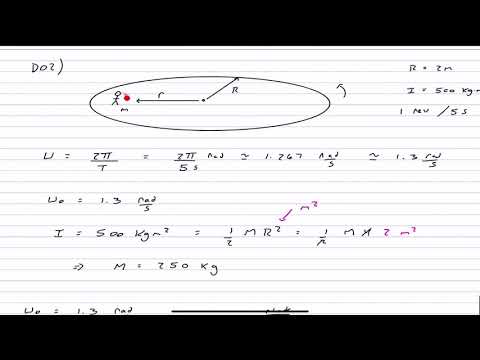 D02)
R = 2m
r
R
m
I = 500 kg m
1 rev / 5s
ω = 2π/T = 2π/5s rad ≃ 1.267 rad/s ≃ 1.3 rad/s
m²
ω₀ = 1.3 rad/s
I = 500 kgm² = 1/2 M R² = 1/2 M 4 2 m²
⇒ M = 250 kg
ω₀ = 1.3 rad